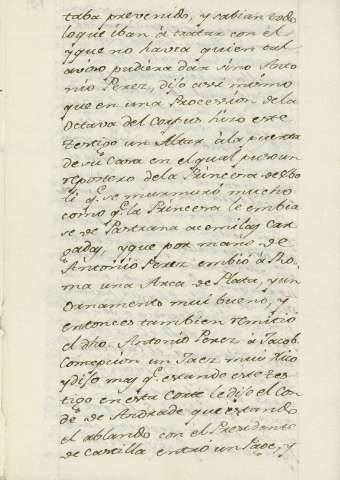 taba prevenido, y sabian todo
lo que iban à tratar con èl
y que no havia quien tal
aviso pudiera dàr sino Anto-
nio Perez, dijo assi mismo
que en una Procession de la
Octava del Corpus hizo este
testigo un Altar à la puerta
de su Casa en el qual puso un
repostero de la Princesa de Ebo
li q.e se murmurò mucho
como q.e la Princesa le embia
se de Pastrana acemilas Car-
gadas, y que por mano de
Antonio Perez embiò à Ro-
ma una Arca de Plata, y un
Ornamento mui bueno, y
entonces tambien remitiò
el dho. Antonio Perez à Jacob.
un Jaez mui Rico
y dijo mas q.e estando este tes-
tigo en esta Corte le dijo el Con-
de de Andrade que estando
el ablando con el Presidente
de Castilla entrò un Page, y